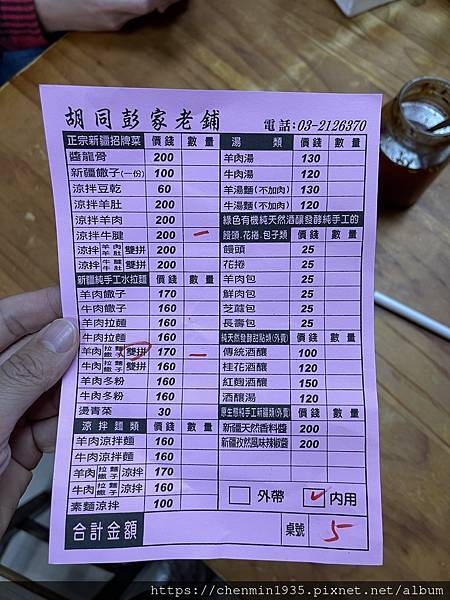 胡同彭家老舖
電話:03-2126370
正宗新疆招牌菜 價錢 數量
醬龍骨 200
新疆饊子(一份) 100
涼拌豆乾 60
涼拌羊肚 200
涼拌羊肉 200
涼拌牛腱 200 一
涼拌羊肉羊肚雙拼 200
涼拌牛腱牛肚雙拼 200
新疆純手工水拉麵 價錢 數量
羊肉饊子 170
牛肉饊子 160
羊肉拉麵 160
牛肉拉麵 160
羊肉拉麵饊子雙拼 170 一
牛肉拉麵饊子雙拼 160
羊肉冬粉 160
牛肉冬粉 160
燙青菜 30
涼拌麵類 價錢 數量
羊肉涼拌麵 160
牛肉涼拌麵 160
羊肉拉麵饊子涼拌 170
牛肉拉麵饊子涼拌 160
素麵涼拌 100
合計金額
湯類 價錢 數量
羊肉湯 130
牛肉湯 120
羊湯麵(不加肉) 130
牛湯麵(不加肉) 120
綠色有機純天然酒釀發酵純手工的
饅頭.花捲.包子類 價錢 數量
饅頭 25
花捲 25
羊肉包 25
鮮肉包 25
芝蔴包 25
長壽包 25
純天然發酵甜點類(外賣) 價錢 數量
傳統酒釀 100
桂花酒釀 120
紅麴酒釀 150
酒釀湯 120
原生態純手工新疆類(外賣) 價錢 數量
新疆天然香料醬 200
新疆孜然風味辣椒醬 200
外帶 ✓ 內用
桌號 5
https://chenmin1935.pixnet.net/album